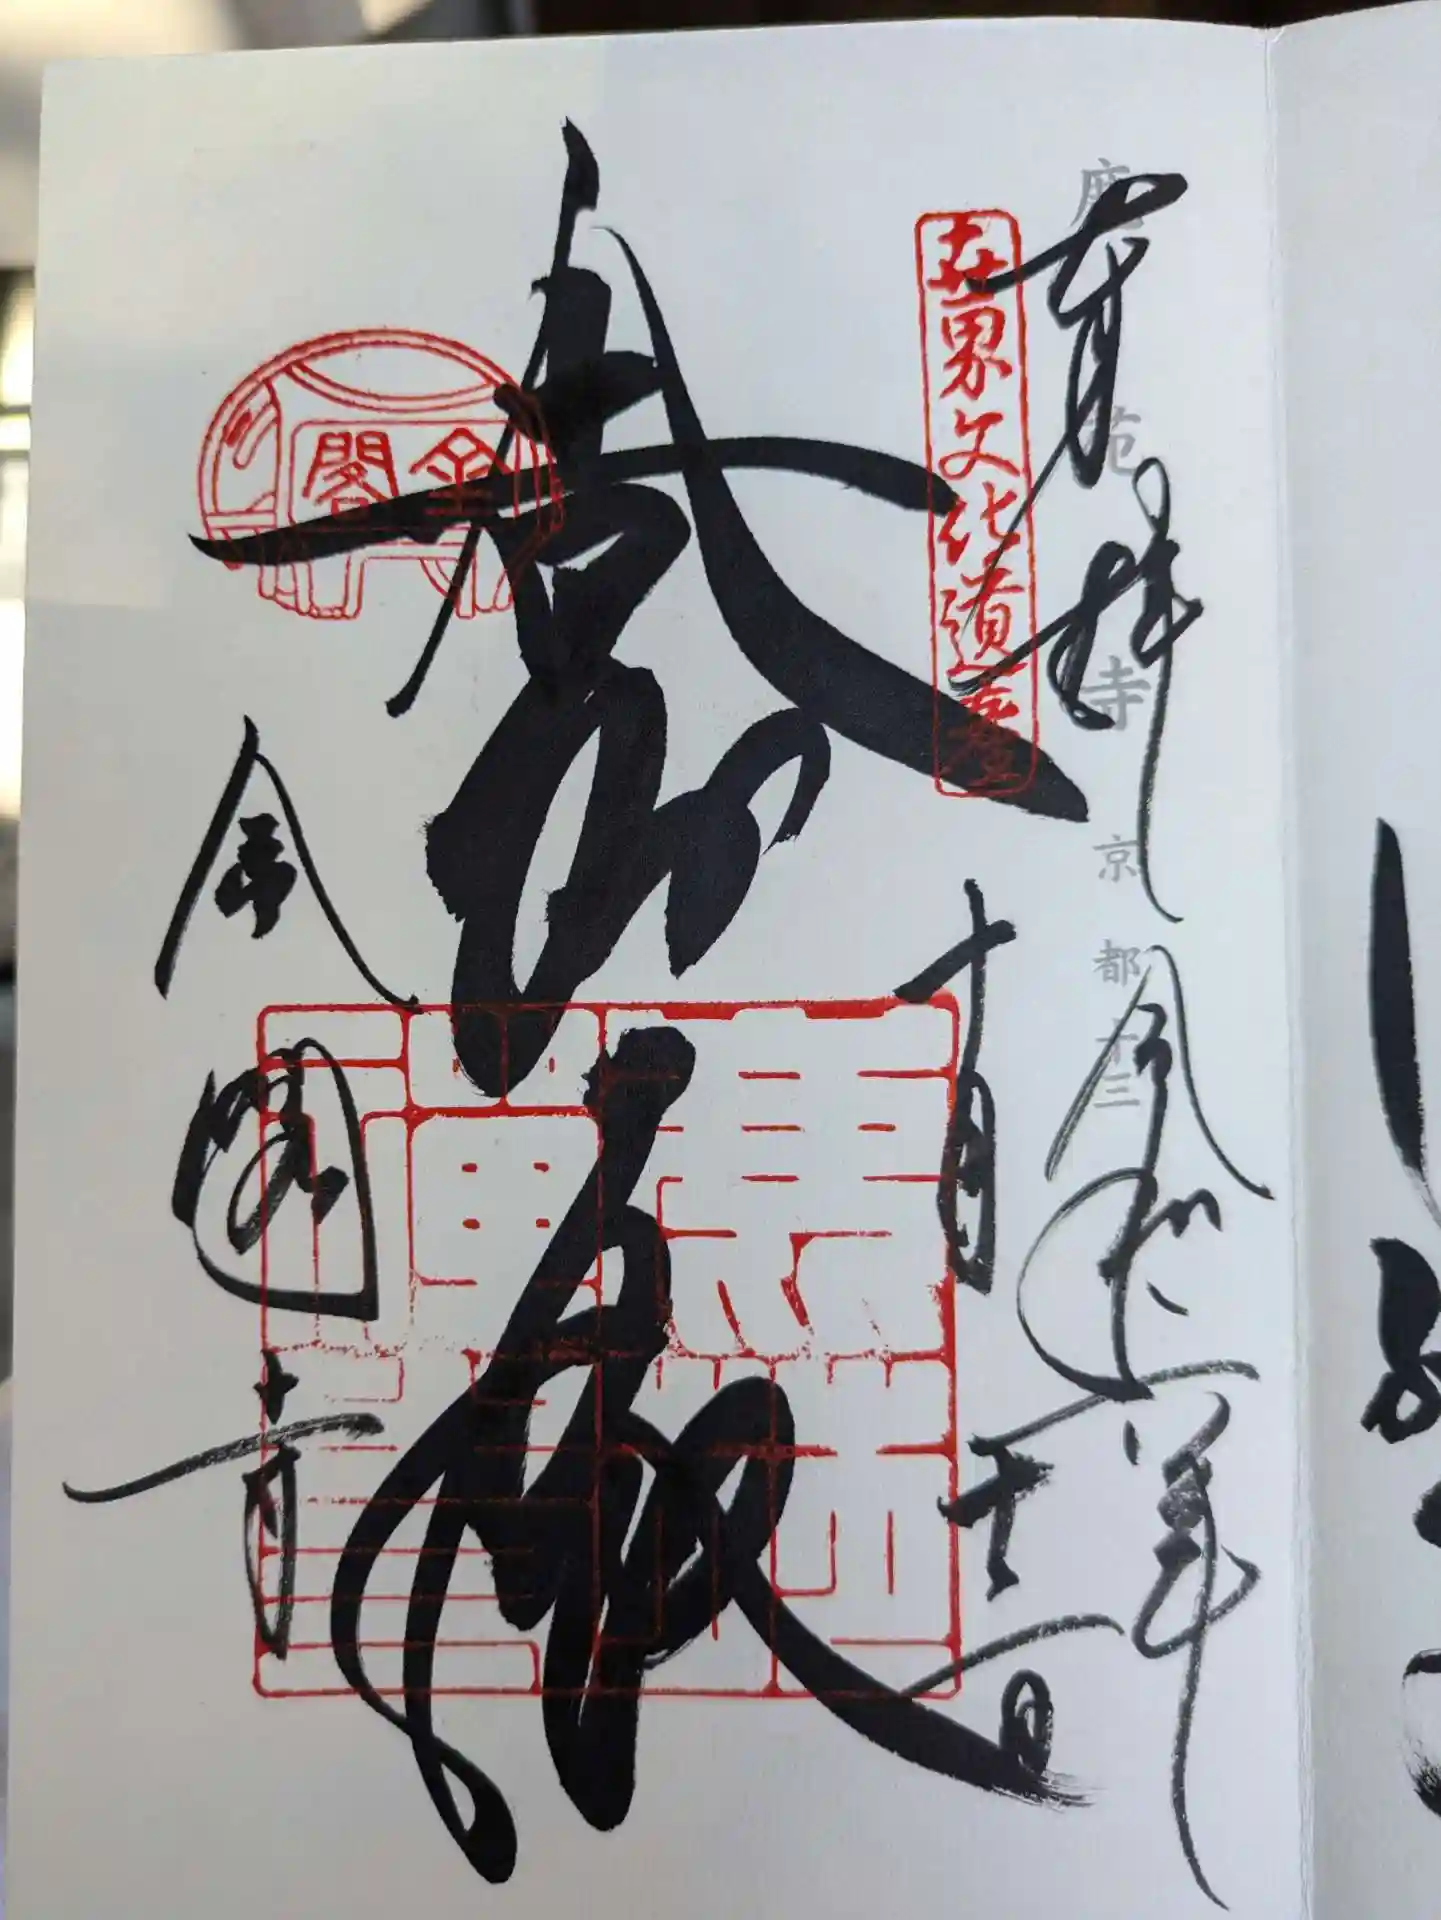 鹿苑寺 京都十三
奉拝 令和 年
世界文化遺産
十月 日
舎利殿
金閣
金閣寺